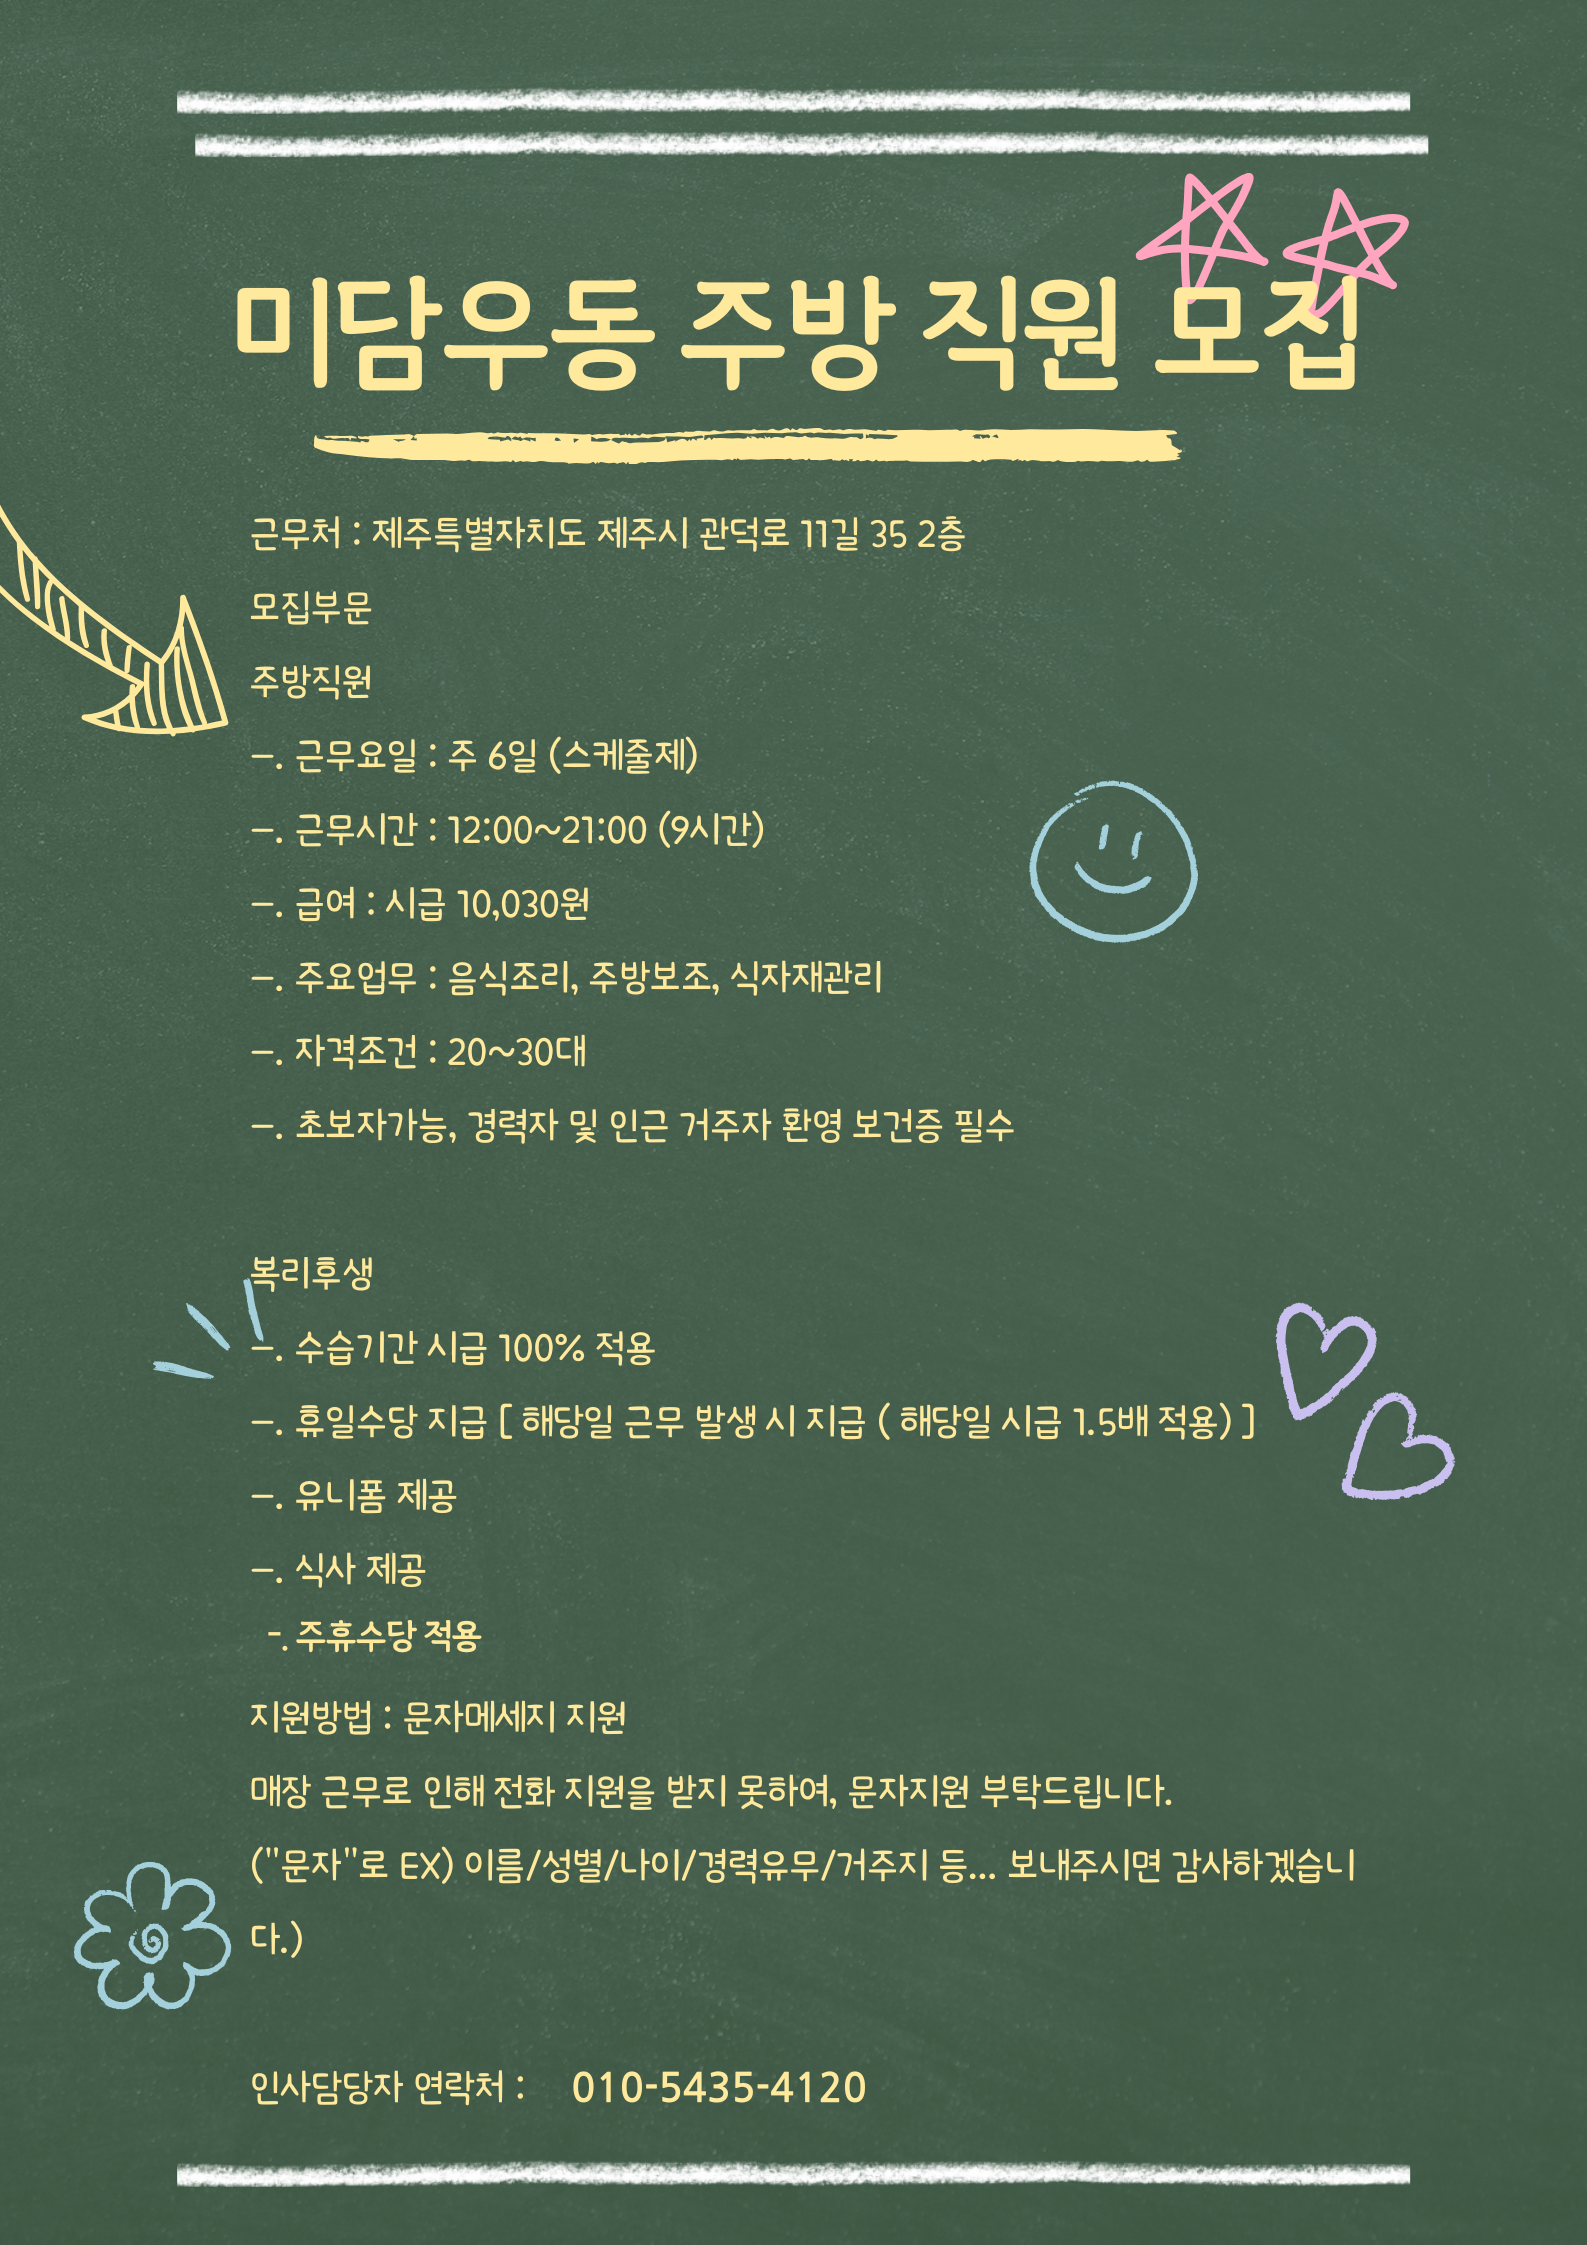 미담우동 주방 직원 모집
근무처 : 제주특별자치도 제주시 관덕로 11길 35 2층
모집부문
주방직원
-. 근무요일 : 주 6일 (스케줄제)
-. 근무시간 : 12:00~21:00 (9시간)
-. 급여 : 시급 10,030원
-. 주요업무 : 음식조리, 주방보조, 식자재관리
-. 자격조건 : 20~30대
-. 초보자가능, 경력자 및 인근 거주자 환영 보건증 필수
복리후생
-. 수습기간 시급 100% 적용
-. 휴일수당 지급 [ 해당일 근무 발생 시 지급 ( 해당일 시급 1.5배 적용) ]
-. 유니폼 제공
-. 식사 제공
-. 주휴수당 적용
지원방법 : 문자메세지 지원
매장 근무로 인해 전화 지원을 받지 못하여, 문자지원 부탁드립니다.
("문자"로 EX) 이름/성별/나이/경력유무/거주지 등... 보내주시면 감사하겠습니
다.)
인사담당자 연락처 : 010-5435-4120